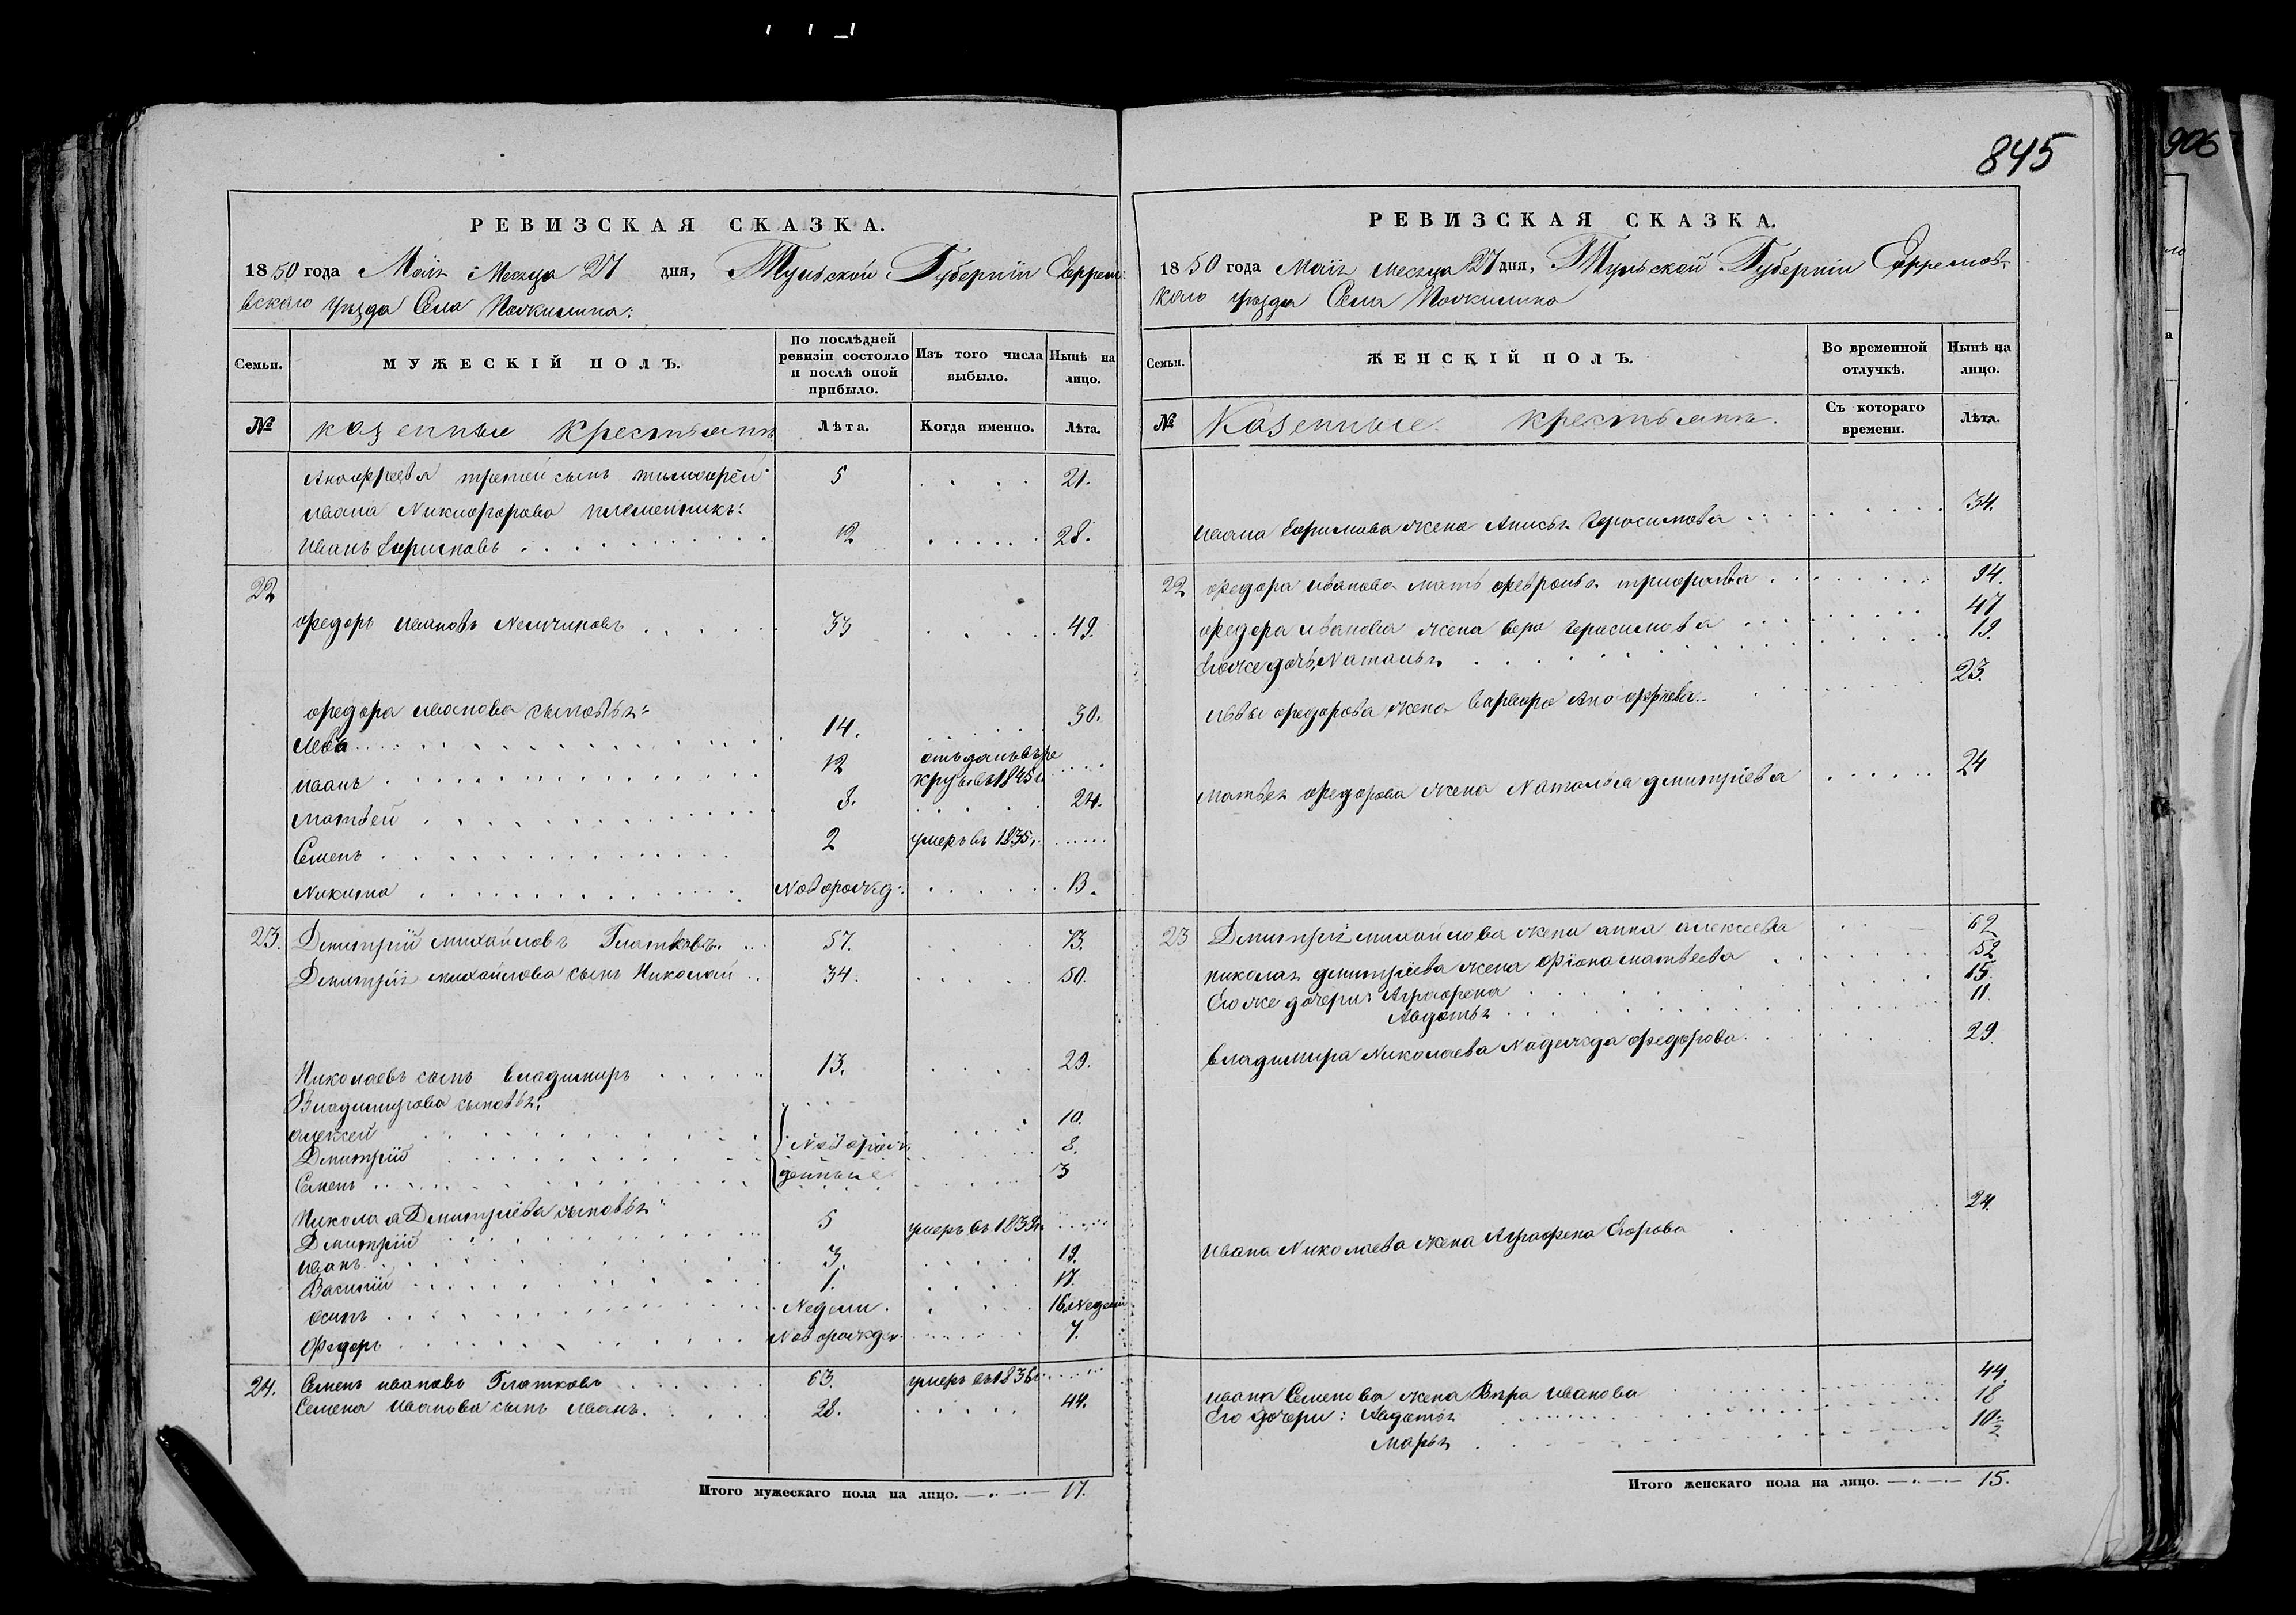 845
906
РЕВИЗСКАЯ СКАЗКА.
1850 года Маія Месяца 27 дня, Тульской Губерніи Ефремо
вскаго уезда Села
Семьи.
МУЖЕСКІЙ ПОЛЪ.
По послѣдней ревизіи состояло и послѣ оной прибыло.
Изъ того числа выбыло.
Нынѣ на лицо.
№ казенные крестьяне
Лѣта.
Когда именно.
Лѣта.
Аноффеева третей сынъ тимофей 5 21.
ивана Никифорова племенникъ:
иванъ Ефримовъ 12 28.
22
федоръ ивановъ 33 49.
федора иванова сыновья:
Лева 14. 30.
иванъ 12 отъданъ въ ре
круты въ 1845
матвей 8. 24.
Семенъ 2 умеръ въ 1835
Никита Новорожд: 13.
23. Дмитрій михайловъ Глатковъ 57. 73.
Дмитрія михайлова сынъ Николай 34. 50.
Николаевъ сынъ владимиръ 13. 29.
Владимирова сыновья:
алексей 10.
Дмитрій Новорож 8.
Семенъ денные 3
Никола а Дмитріева сыновья:
Дмитрій 5 умеръ въ 1839
иванъ 3. 19.
Василий 1. 17.
осипъ Недели. 16 Недели
Федоръ Новорожден 7.
24. Семенъ ивановъ Глатковъ 63. умеръ въ 1836
Семена иванова сынъ иванъ. 28. 44.
Итого мужескаго пола на лицо. 17.
РЕВИЗСКАЯ СКАЗКА.
1850 года Маія месяца 27 дня, Тульской Губерніи Ефремов
каго уезда Села
Семьи.
ЖЕНСКІЙ ПОЛЪ.
Во временной отлучкѣ.
Нынѣ на лицо.
№ Казенные крестьяне.
Съ котораго времени.
Лѣта.
ивана Ефримова жена Анисья Герасимова 34.
22 федора иванова мать февронья трифонова 94.
федора иванова жена вера герасимова 47
Егоже дочь Наталья 19.
львы федорова жена варвара Аноффиева 23.
матвея федорова жена Наталья дмитріева 24
23 Дмитрія михайлова жена анна алексеева 62
николая дмитріева жена фіона матвеева 52
Егоже дочери: Аграфена 15.
Авдотья 11.
владимира Николаева Надежда федорова 29.
ивана Николаева жена Аграфена Егорова 24.
ивана Семенова жена Вера иванова 44.
Его дочери: Авдотья 18
Марья 10½
Итого женскаго пола на лицо. 15.